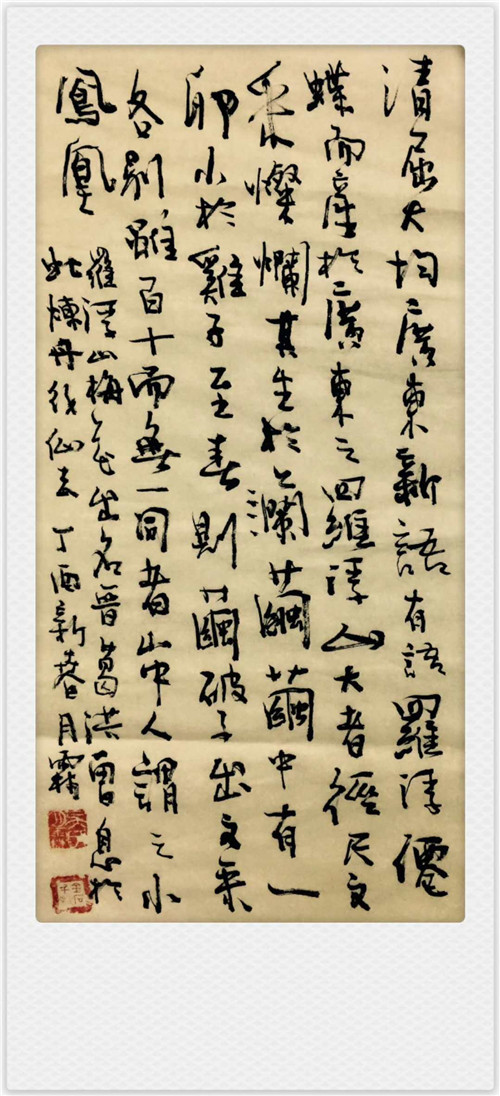 清屈大均廣東新語有語羅浮僊
蝶而産於廣東之羅浮山大者徑尺文
采燦爛其生於繭繭中有一
卵小於雞子至春則繭破子出文采
各別雖百十而無一同者山中人謂之小
鳳凰
羅浮山梅花出名晉葛洪曾息於
此煉丹後仙去 丁酉新春月霜